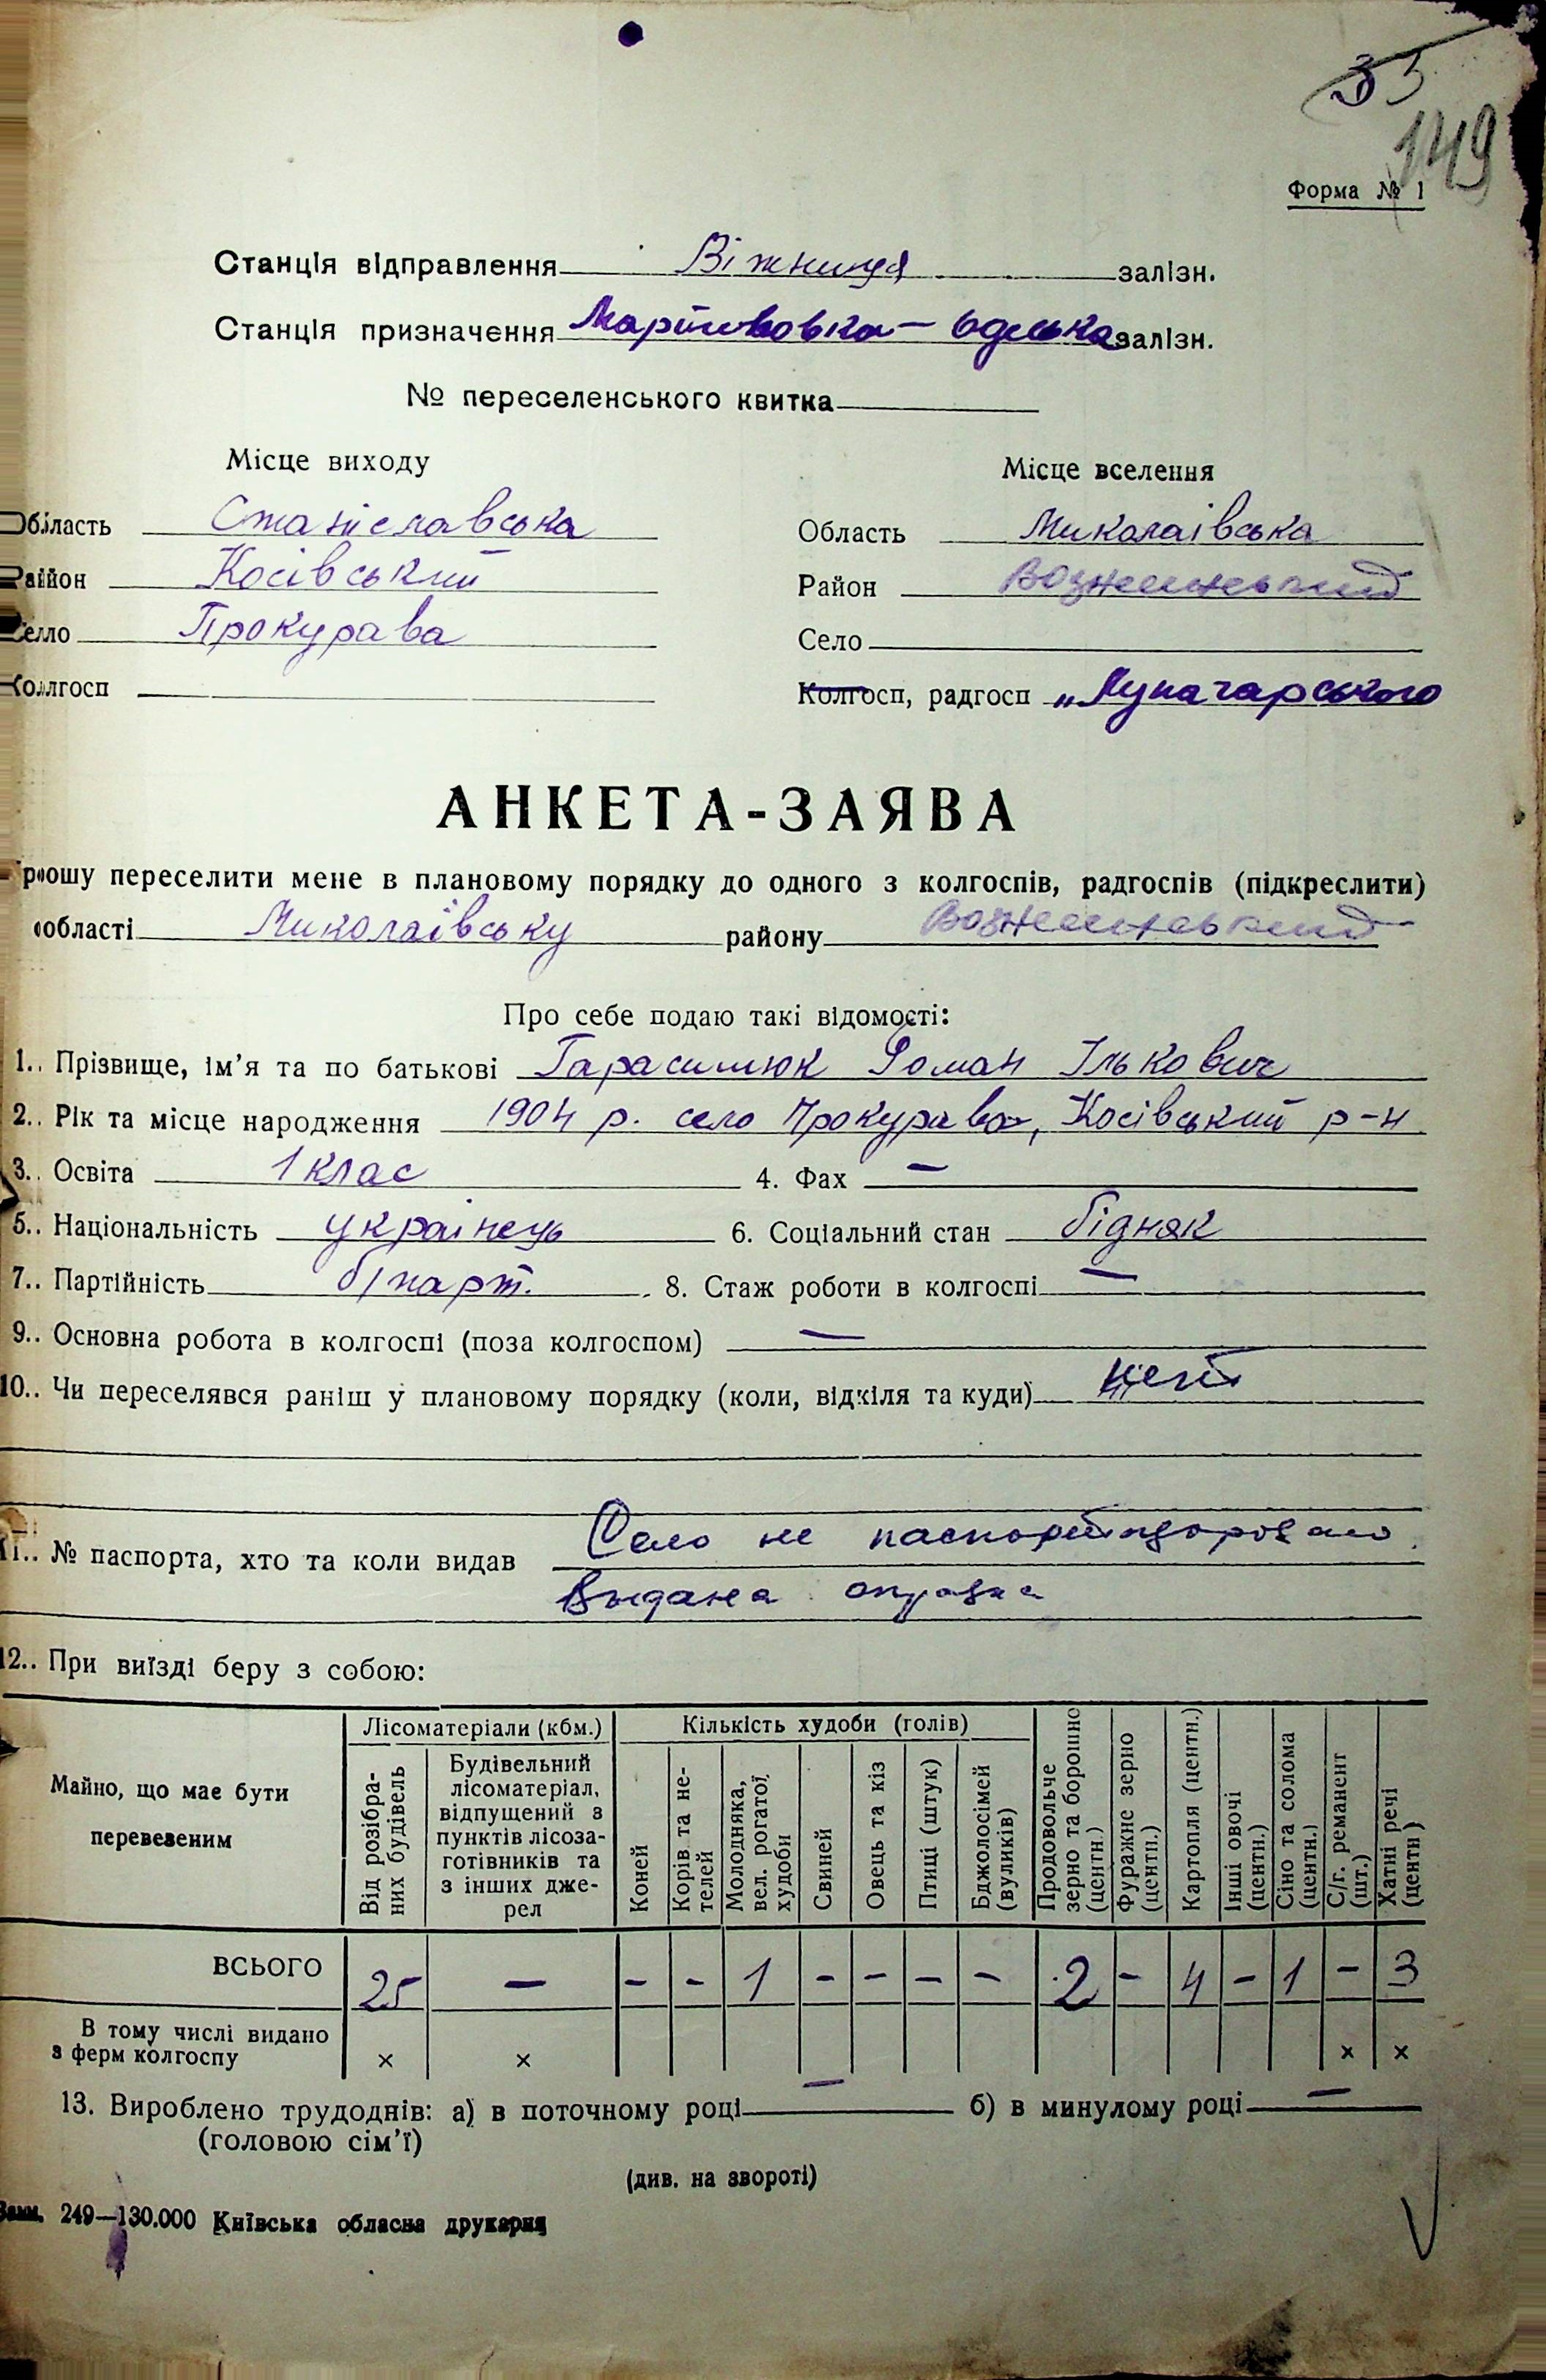 35
149
Форма № 1
Станція відправлення Віжниця залізн.
Станція призначення Мартиновка – Одеська залізн.
№ переселенського квитка
Місце виходу
Місце вселення
Область Станіславська
Область Миколаівська
Район Косівський
Район
Село Прокурава
Село
Колгосп
Колгосп, радгосп „Луначарського
АНКЕТА-ЗАЯВА
Прошу переселити мене в плановому порядку до одного з колгоспів, радгоспів (підкреслити)
області Миколаівську району
Про себе подаю такі відомості:
1. Прізвище, ім’я та по батькові Гарасимюк Роман Ількович
2. Рік та місце народження 1904 р. село Прокурава, Косівський р-н
3. Освіта 1 клас 4. Фах —
5. Національність украінець 6. Соціальний стан бідняк
7. Партійність б/парт. 8. Стаж роботи в колгоспі —
9. Основна робота в колгоспі (поза колгоспом) —
10. Чи переселявся раніш у плановому порядку (коли, відкіля та куди)
11. № паспорта, хто та коли видав Село не паспортизоровано.
Выдана справка
12. При виїзді беру з собою:
Майно, що має бути перевезеним
Лісоматеріали (кбм.)
Кількість худоби (голів)
Від розібраних будівель
Будівельний лісоматеріал, відпущений з пунктів лісозаготівників та з інших джерел
Коней
Корів та нетелей
Молодняка, вел. рогатої худоби
Свиней
Овець та кіз
Птиці (штук)
Бджолосімей (вуликів)
Продовольче зерно та борошно (центн.)
Фуражне зерно (центн.)
Картопля (центн.)
Інші овочі (центн.)
Сіно та солома (центн.)
С/г. реманент (шт.)
Хатні речі (центн)
ВСЬОГО 25 — – – 1 – – – – 2 – 4 – 1 – 3
В тому числі видано
з ферм колгоспу × × × ×
13. Вироблено трудоднів: а) в поточному році — б) в минулому році —
(головою сім’ї)
(див. на звороті)
Замм. 249—130.000 Київська обласна друкарня